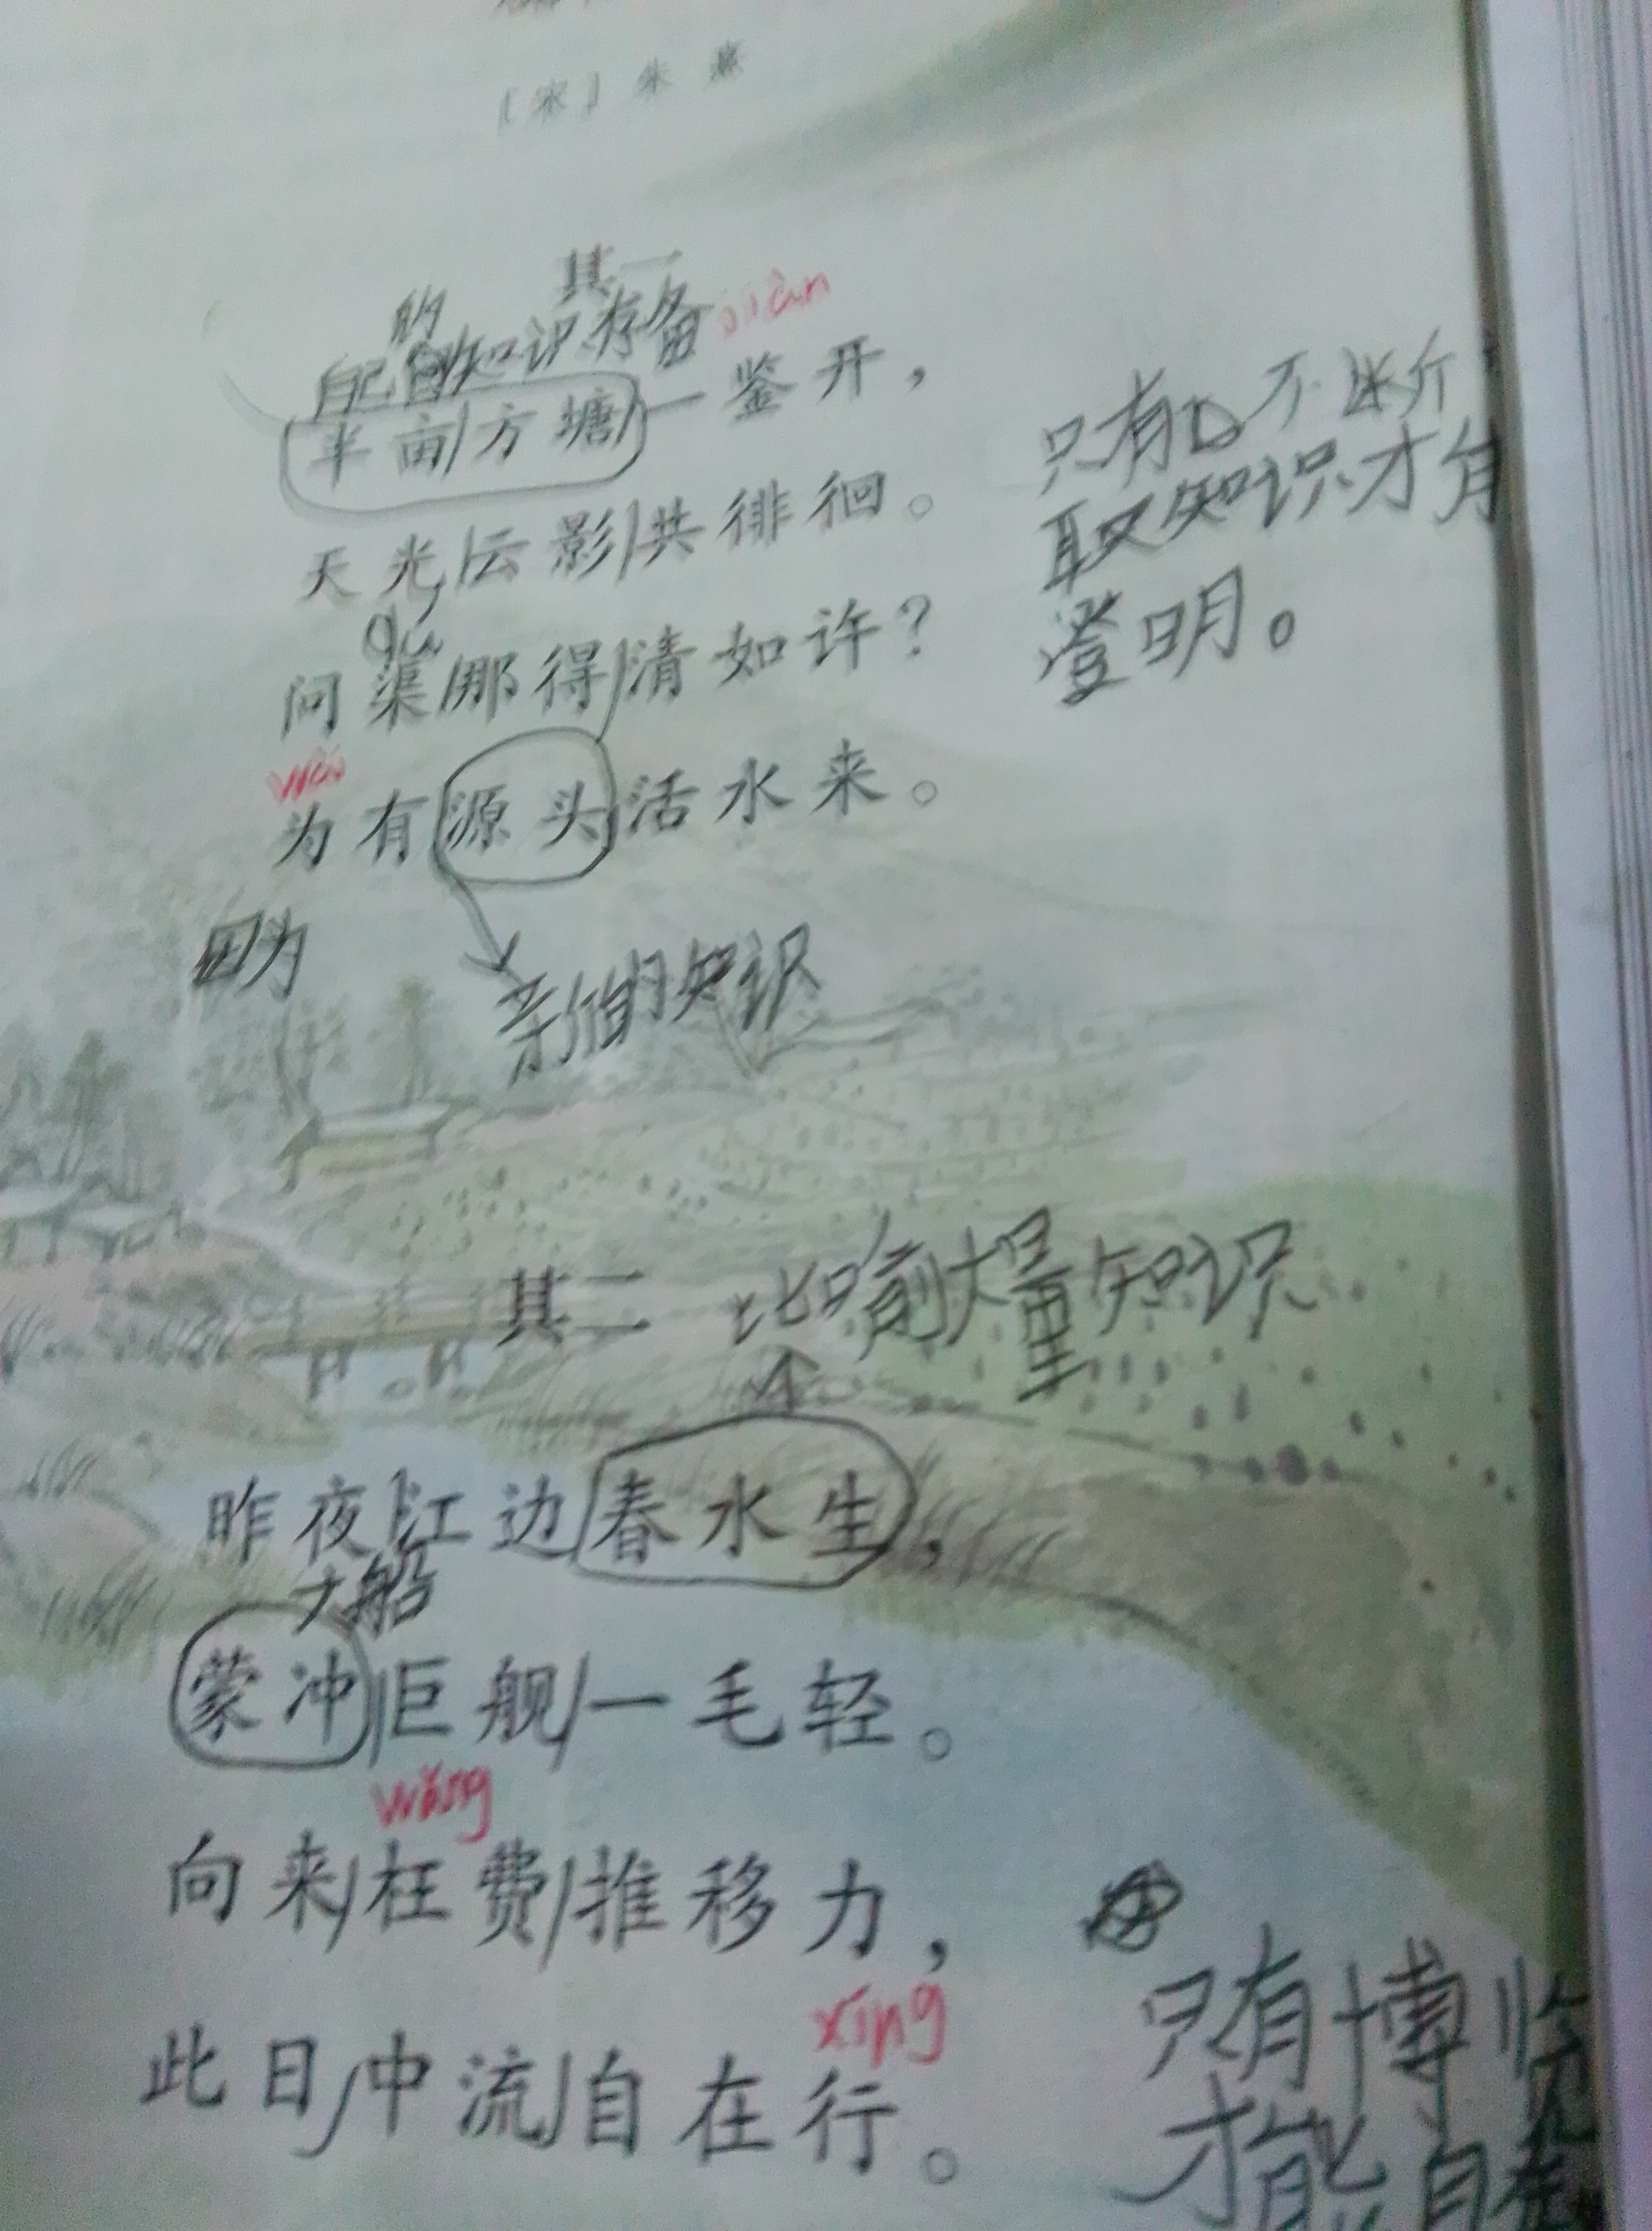 〔宋〕朱熹
其一
的
自己的知识存备
jiàn
半亩/方塘/一鉴开，
天光/云影/共徘徊。
只有 不断
取知识才
qú
问渠/那得/清如许？
澄明。
wèi
为有源头活水来。
因为
新的知识
其二
比喻大量知识
昨夜/江边/春水生，
大船
蒙冲/巨舰/一毛轻。
wǎng
向来/枉费/推移力，
xíng
此日/中流/自在行。
只有博览
才能自在